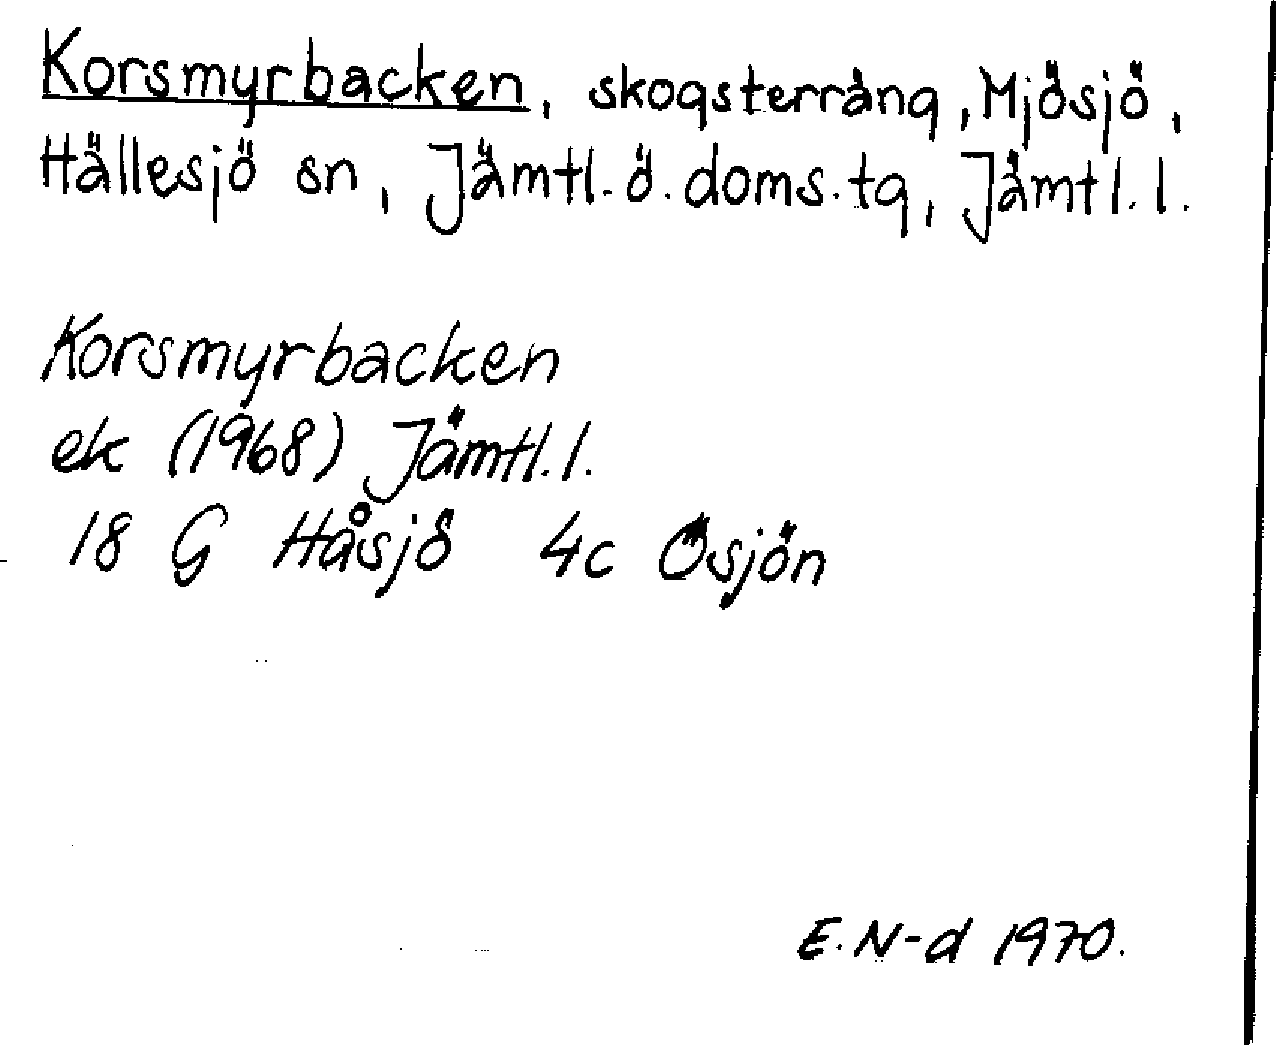 Korsmyrbacken, skogsterräng, Mjösjö,
Hällesjö sn, Jämtl. ö. doms. tg, Jämtl. l.
Korsmyrbacken
ek (1968) Jämtl. l.
18 G Håsjö 4c Ösjön
E. N-d 1970.